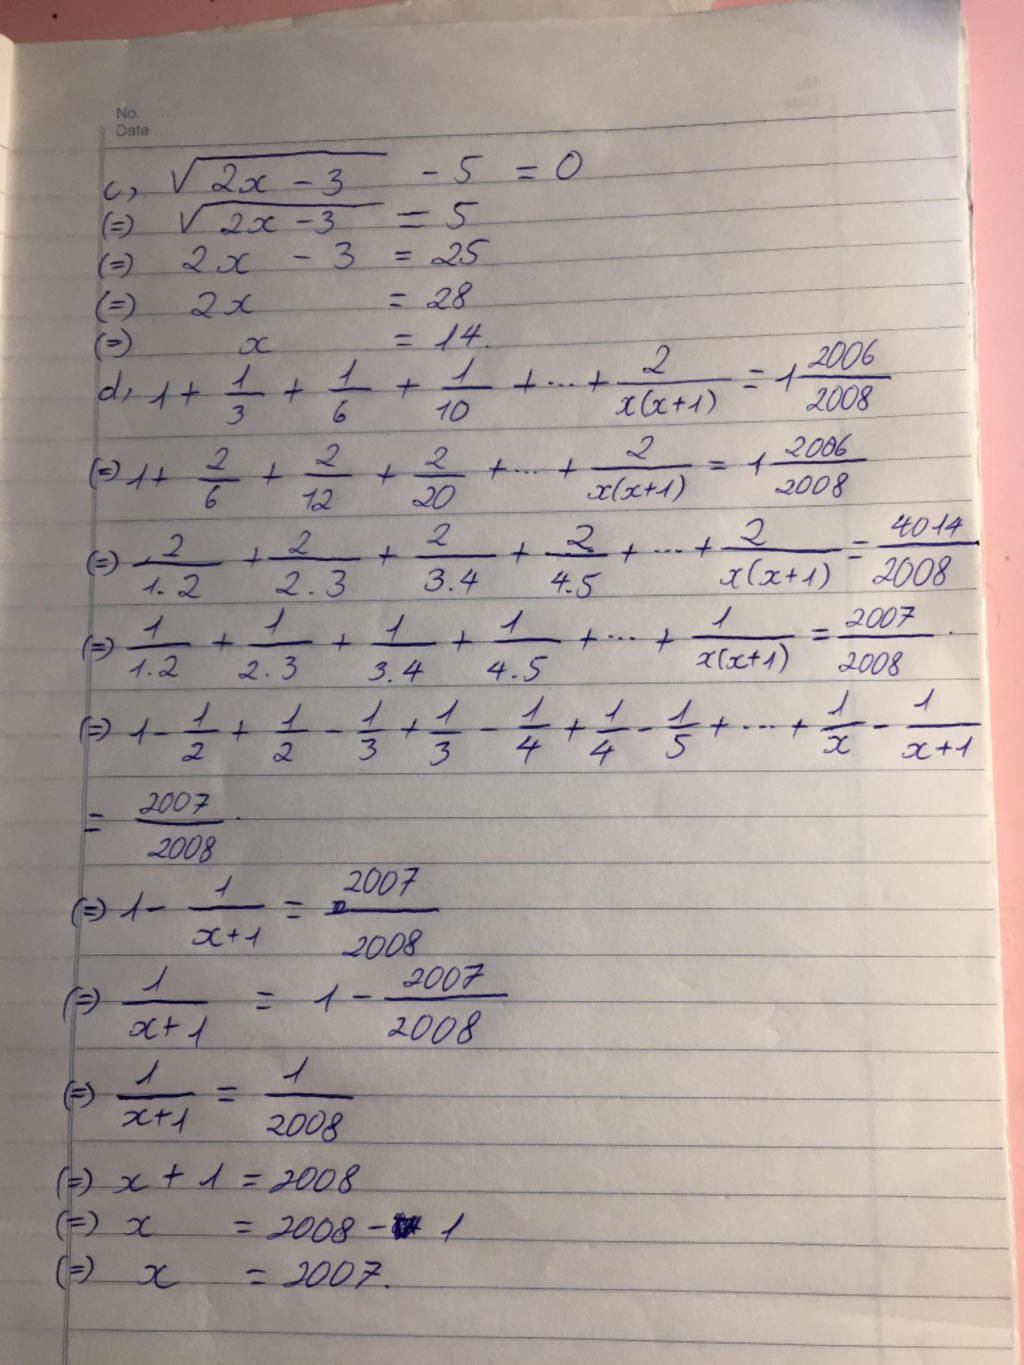 No.
Date
c, √(2x - 3) - 5 = 0
(=) √(2x - 3) = 5
(=) 2x - 3 = 25
(=) 2x = 28
(=) x = 14.
d, 1 + 1/3 + 1/6 + 1/10 + ... + 2/x(x+1) = 1 2006/2008
(=) 1 + 2/6 + 2/12 + 2/20 + ... + 2/x(x+1) = 1 2006/2008
(=) 2/1.2 + 2/2.3 + 2/3.4 + 2/4.5 + ... + 2/x(x+1) = 4014/2008
(=) 1/1.2 + 1/2.3 + 1/3.4 + 1/4.5 + ... + 1/x(x+1) = 2007/2008.
(=) 1 - 1/2 + 1/2 - 1/3 + 1/3 - 1/4 + 1/4 - 1/5 + ... + 1/x - 1/x+1
= 2007/2008.
(=) 1 - 1/x+1 = 2007/2008
(=) 1/x+1 = 1 - 2007/2008
(=) 1/x+1 = 1/2008
(=) x + 1 = 2008
(=) x = 2008 - 1
(=) x = 2007.